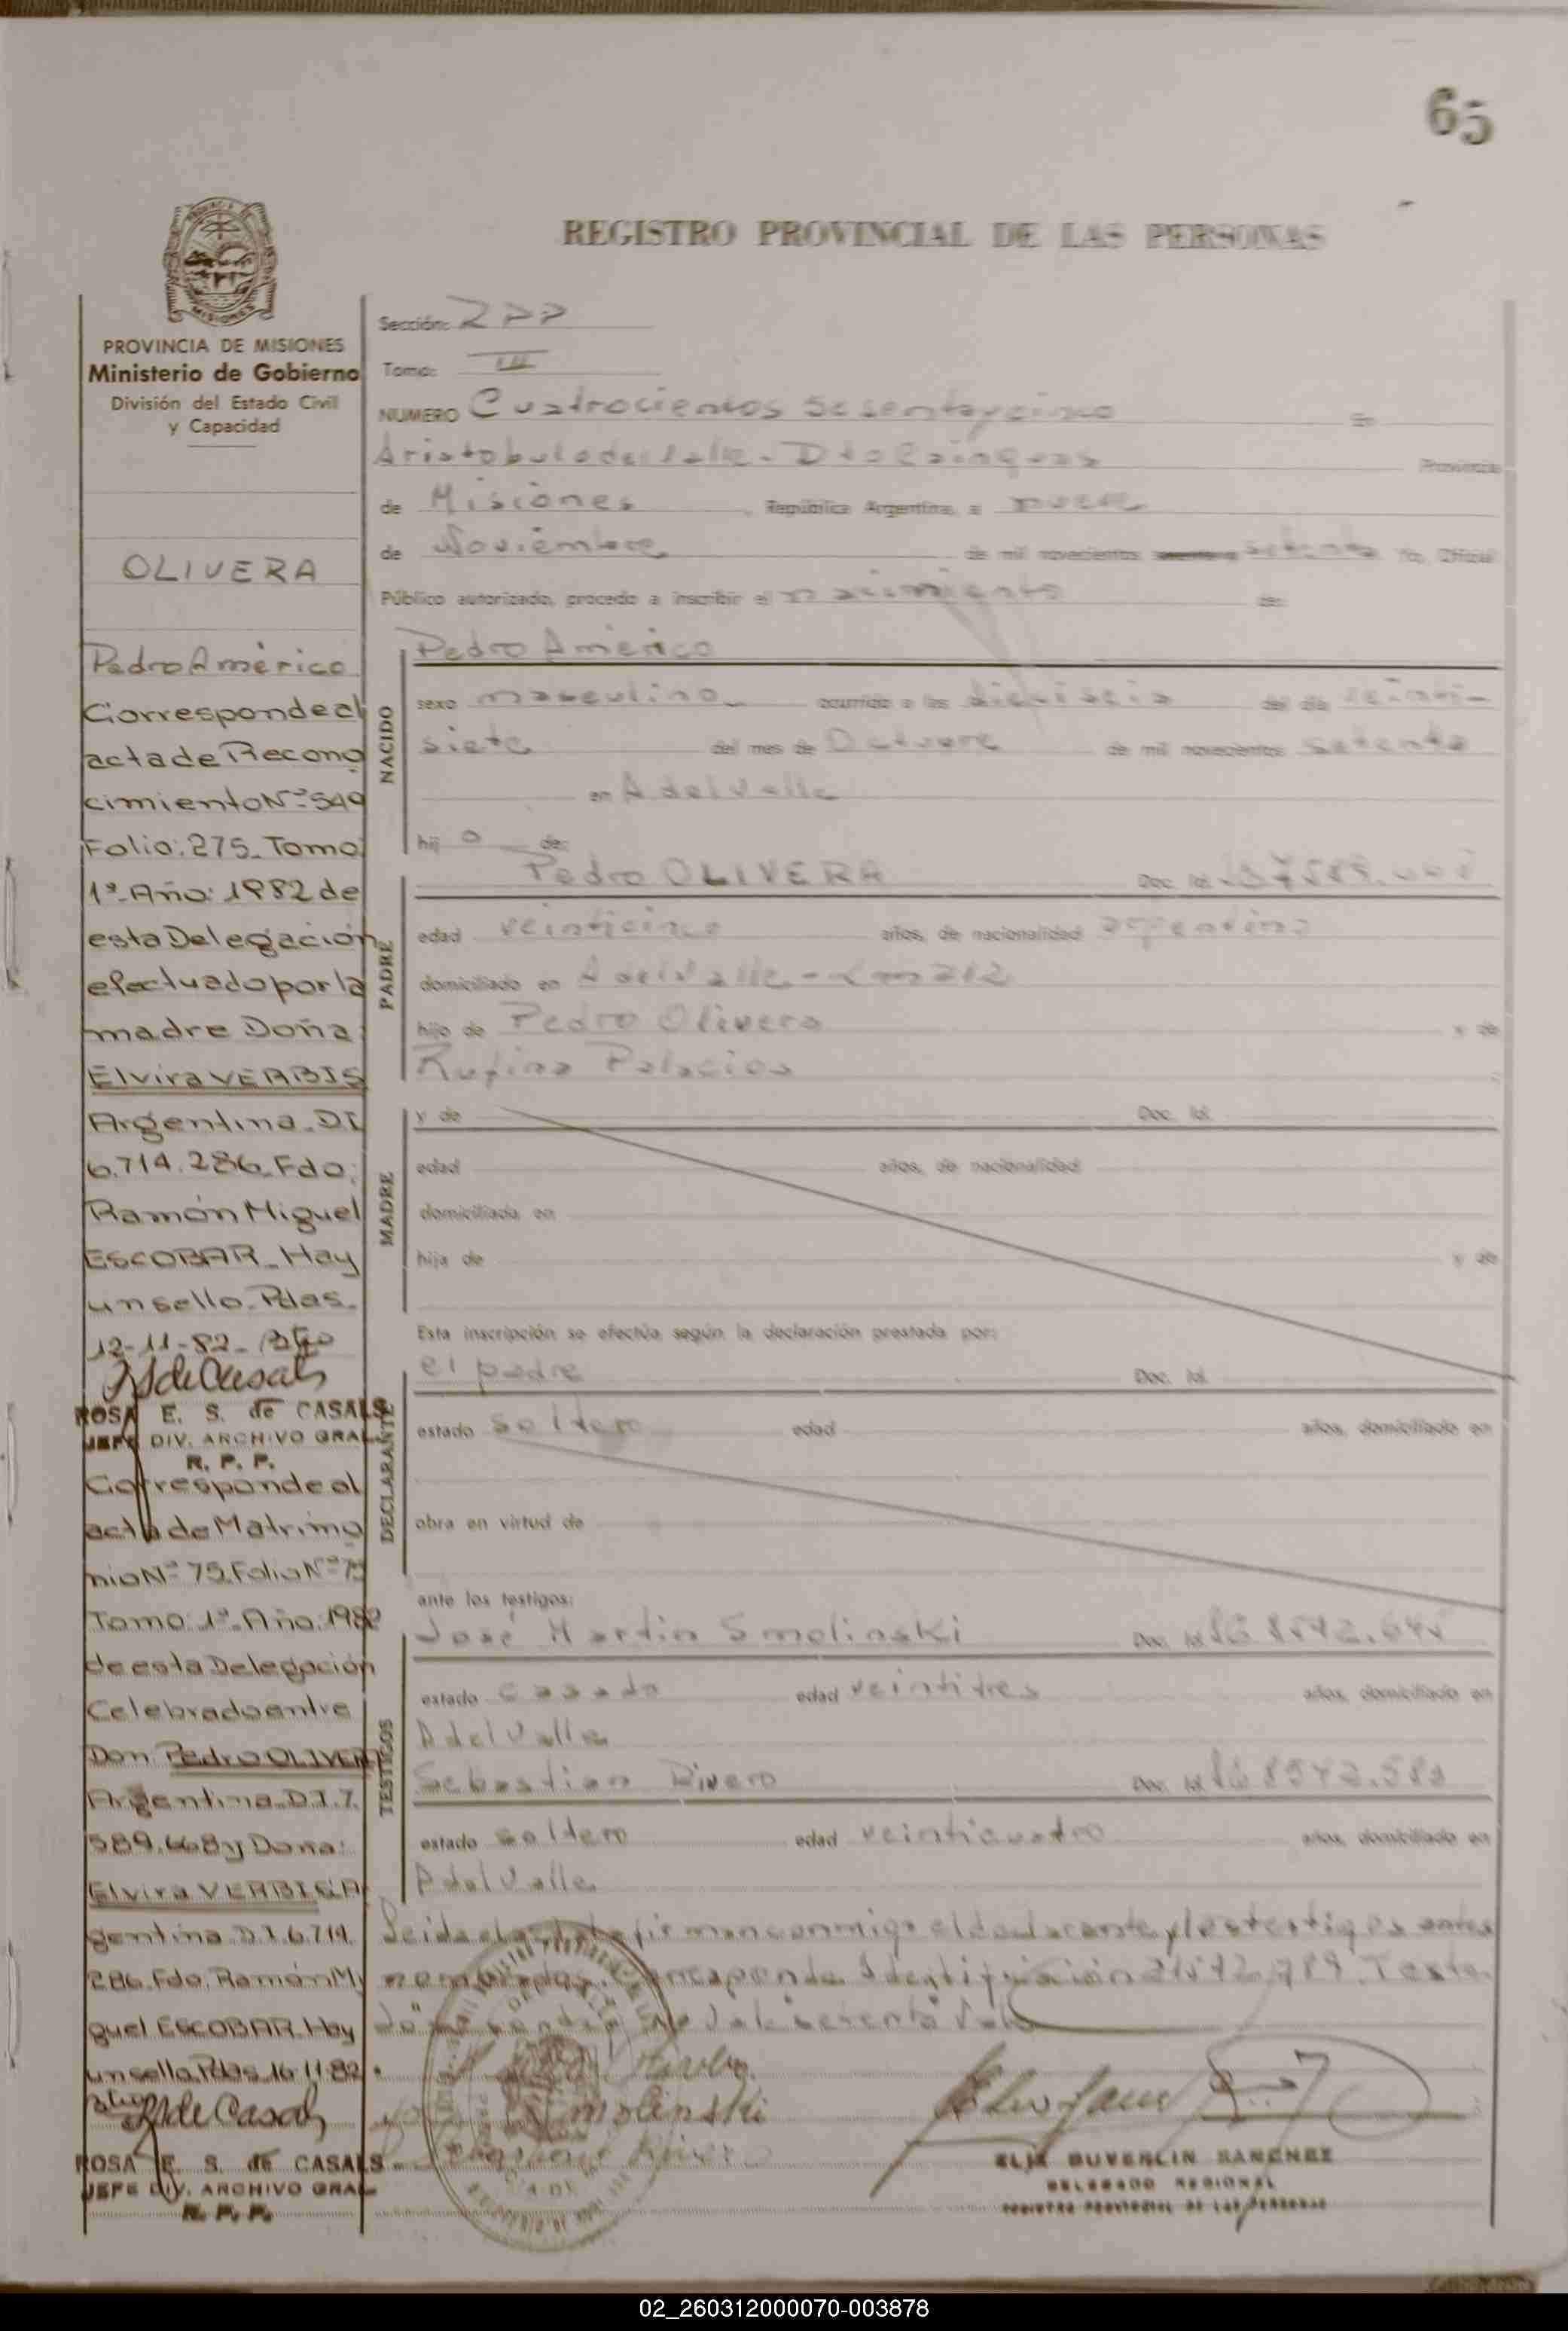 65
REGISTRO PROVINCIAL DE LAS PERSONAS
MISIONES
PROVINCIA DE MISIONES
Ministerio de Gobierno
División del Estado Civil
y Capacidad
OLIVERA
Pedro Américo
Corresponde al
acta de Recono
cimiento Nº 549
Folio: 275_ Tomo
1º_ Año: 1982 de
esta Delegación
efectuado por la
madre Doña:
Elvira VERBIS
Argentina_ D.I
6.714.286_ Fdo:
Ramón Miguel
ESCOBAR_ Hay
un sello_ Pdas.
12-11-82_
ROSA E. S. de CASALS
JEFE DIV. ARCHIVO GRAL
R. P. P.
Corresponde al
acta de Matrimo
nio Nº 75 Folio Nº 75
Tomo: 1º_ Año: 1982
de esta Delegación
Celebrado entre
Don Pedro OLIVERA
Argentina_ D.I.7.
589.668 y Doña:
Elvira VERBIS A
gentina D.I. 6.714.
286_ Fdo. Ramón Mi
guel ESCOBAR Hay
un sello Pdas 16-11-82
ROSA E. S. de CASALS
JEFE DIV. ARCHIVO GRAL
R. P. P.
Sección:
Tomo: III
NUMERO Cuatrocientos sesenta y cinco En
Aristobulo del Valle - Dto Cainguas Provincia
de Misiones, República Argentina, a nueve
de Noviembre de mil novecientos setenta Yo, Oficial
Público autorizado, procedo a inscribir el nacimiento de:
NACIDO
Pedro Américo
sexo masculino ocurrido a las dieciseis del día veinti-
siete del mes de Octubre de mil novecientos setenta
en A del Valle
hij o de:
PADRE
Pedro OLIVERA Doc. Id.
edad veinticinco años, de nacionalidad argentina
domiciliado en A del Valle - Km 212
hijo de Pedro Olivera y de
Rufina Palacios
MADRE
y de Doc. Id.
edad años, de nacionalidad
domiciliada en
hija de y de
Esta inscripción se efectúa según la declaración prestada por:
DECLARANTE
el padre Doc. Id.
estado soltero edad años, domiciliado en
obra en virtud de
ante los testigos:
TESTIGOS
José Martin Smolinski Doc. Id. 8542.645
estado casado edad veintitres años, domiciliado en
A del Valle
Sebastian Rivero Doc. Id. 8542.583
estado soltero edad veinticuatro años, domiciliado en
A del Valle
Leida el acta firman conmigo el declarante y los testigos antes
nombrados. Corresponde Identificación
Smolinski
Rivero
ELIX DUVERLIN SANCHEZ
DELEGADO REGIONAL
REGISTRO PROVINCIAL DE LAS PERSONAS
02_260312000070-003878